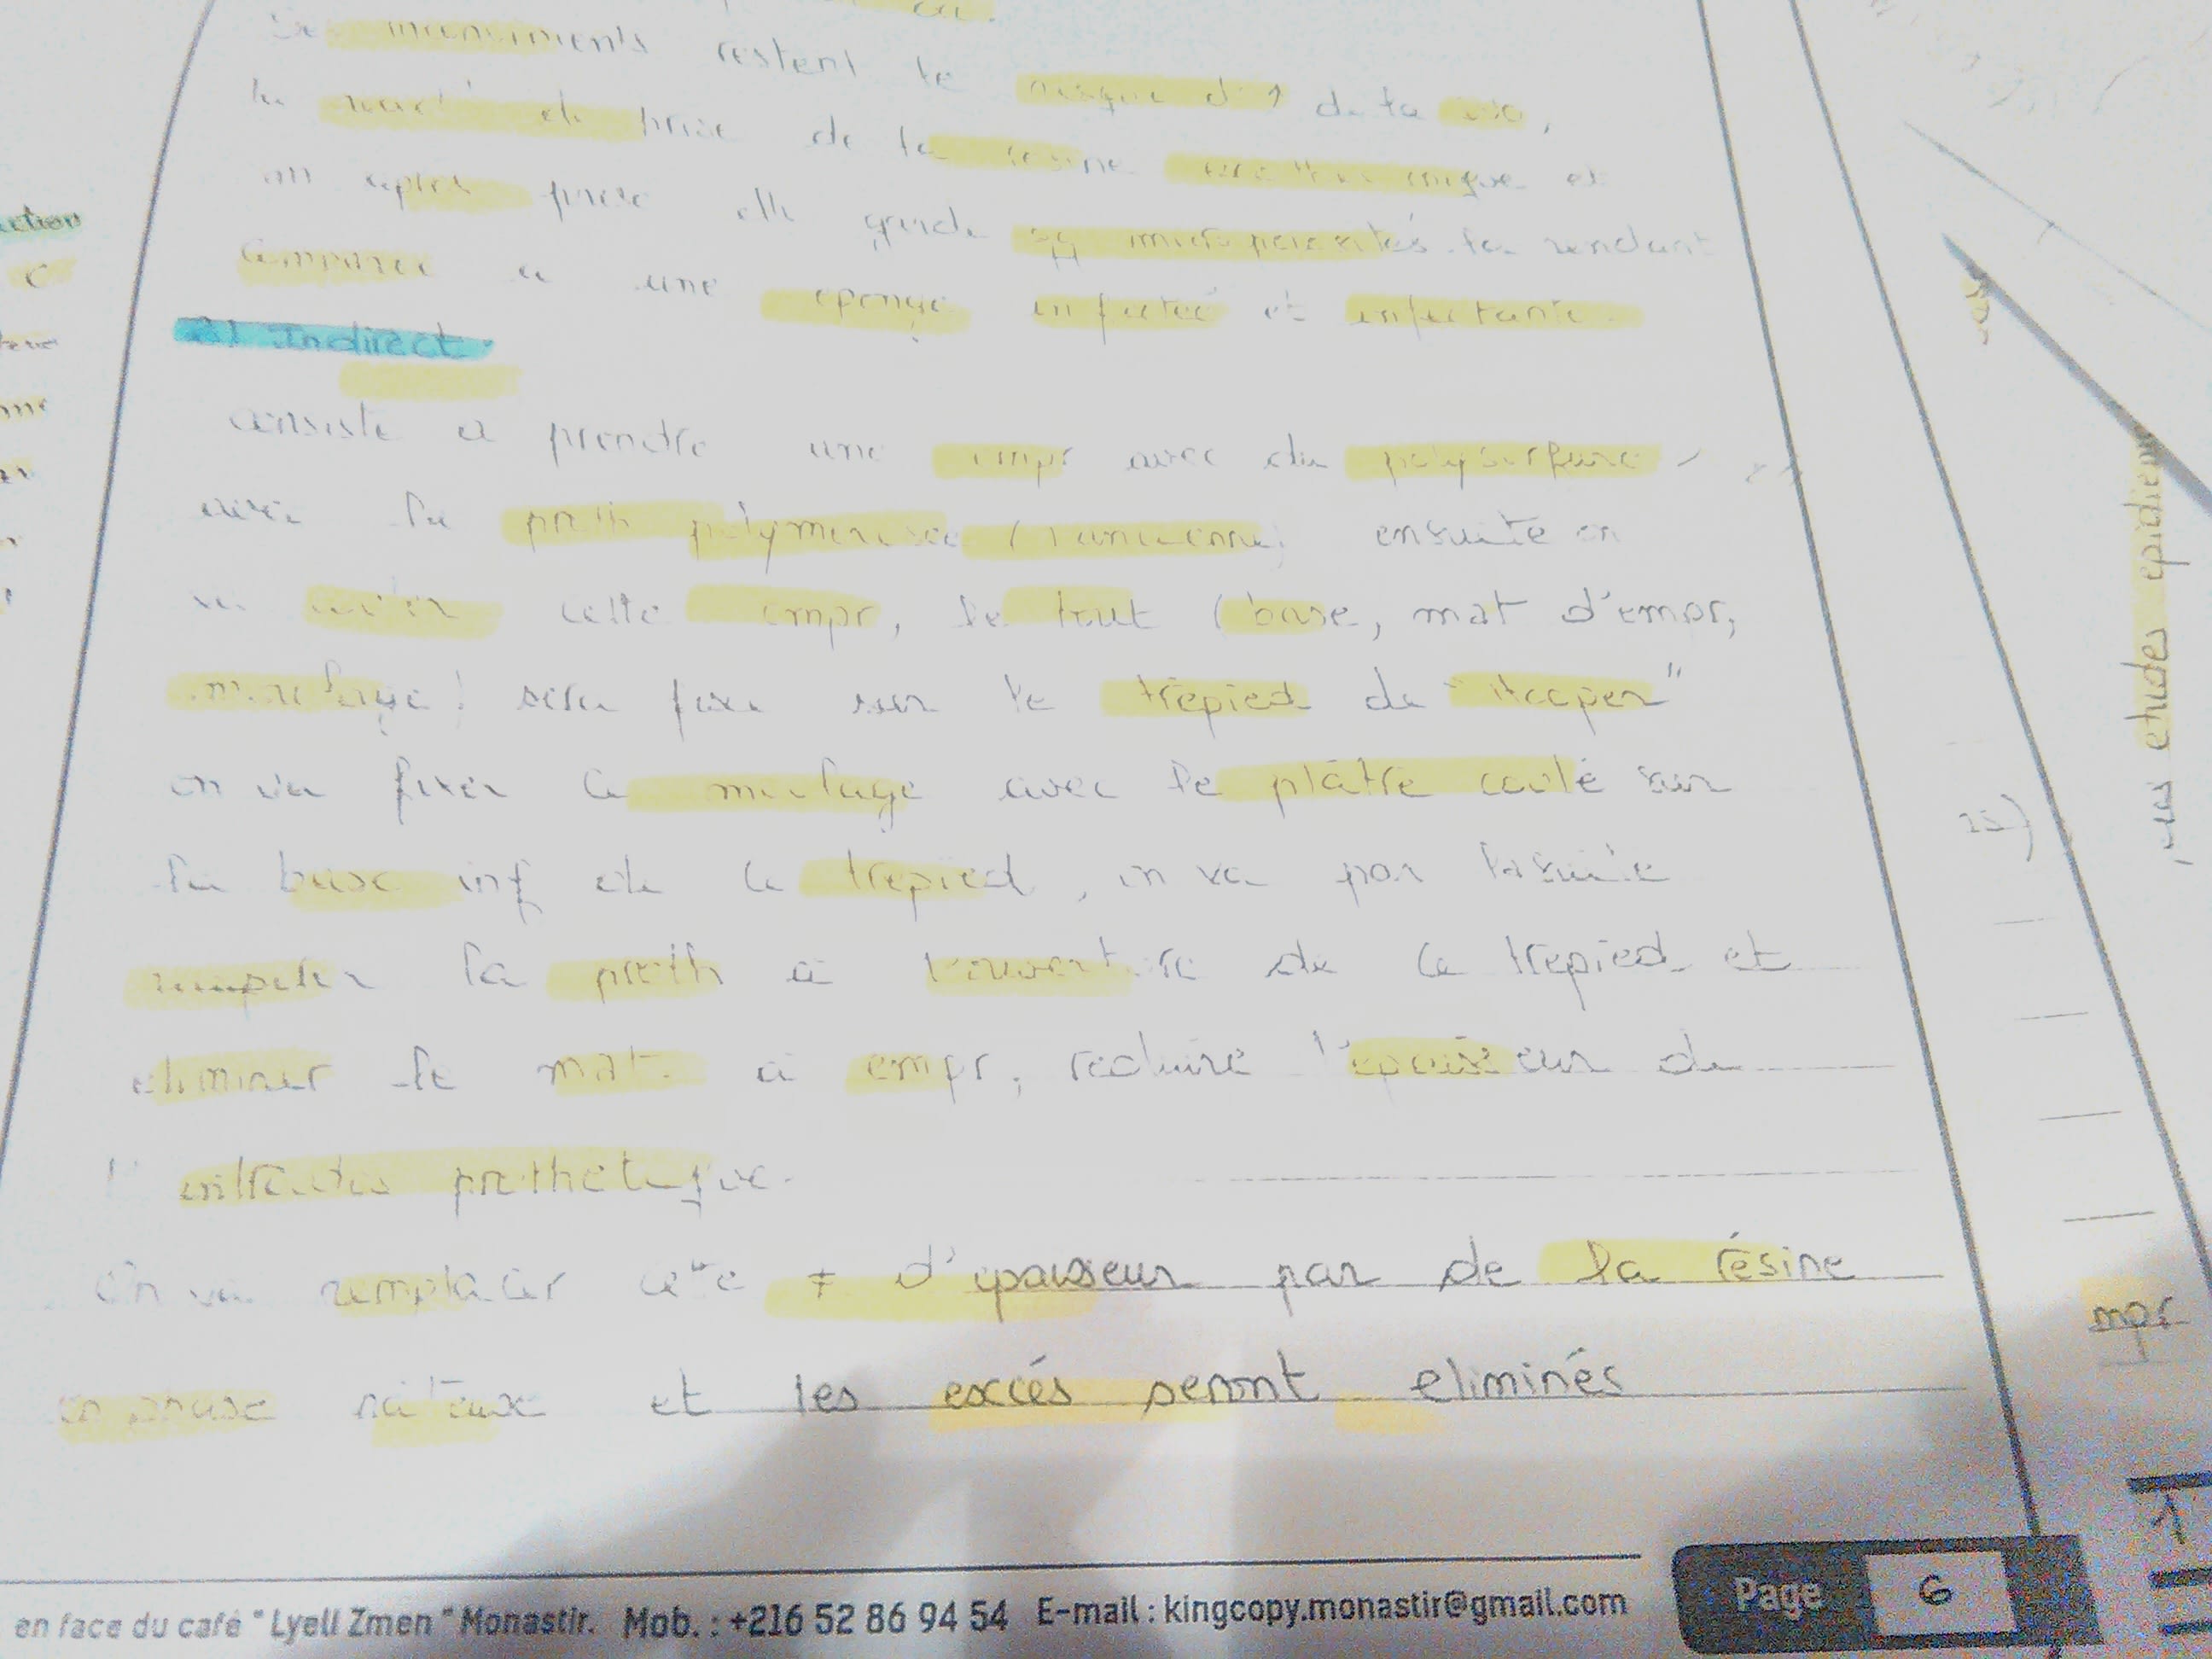 restent le risque d'↑ de la
de prise de la resine et
après prise elle garde microporosités la rendant
à une éponge infectée et infectante.
2) Indirect
consiste à prendre une empr avec du polysulfure
avec la proth polymerisée (l'ancienne) ensuite on
va couler cette empr, le tout (base, mat d'empr,
moulage) sera fixé sur le trepied de "Hooper"
on va fixer ce moulage avec le plâtre coulé sur
la base inf de ce trepied, on va par la suite
recuperer la proth à l'ouverture de ce trepied et
eliminer le mat à empr, reduire l'epaisseur de
l'intrados prothetique.
On va remplacer cette ≠ d'epaisseur par de la résine
et les excés seront eliminés
en face du café "Lyell Zmen" Monastir. Mob. : +216 52 86 94 54 E-mail : kingcopy.monastir@gmail.com
Page 6
ction
les etudes epidiem
mpr